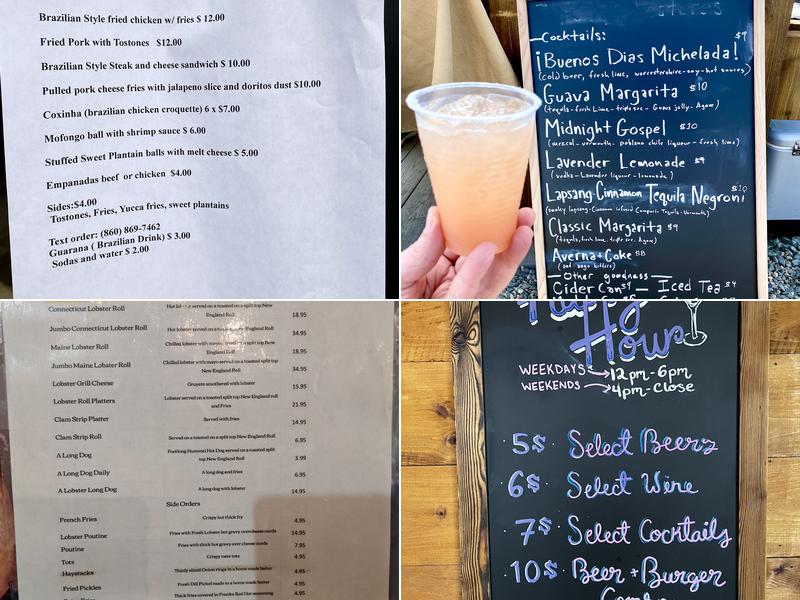 Brazilian Style fried chicken w/ fries $ 12.00
Fried Pork with Tostones $12.00
Brazilian Style Steak and cheese sandwich $ 10.00
Pulled pork cheese fries with jalapeno slice and doritos dust $10.00
Coxinha (brazilian chicken croquette) 6 x $7.00
Mofongo ball with shrimp sauce $ 6.00
Stuffed Sweet Plantain balls with melt cheese $ 5.00
Empanadas beef or chicken $4.00
Sides:$4.00
Tostones, Fries, Yucca fries, sweet plantains
Text order: (860) 869-7462
Guarana ( Brazilian Drink) $ 3.00
Sodas and water $ 2.00
Cocktails: $9
¡Buenos Dias Michelada!
(cold beer, fresh lime, worcestershire-soy-hot sauces)
Guava Margarita $10
(tequila-fresh Lime-triple sec-Guava jelly-Agave)
Midnight Gospel $10
(mezcal-vermouth-poblano chile liqueur-fresh lime)
Lavender Lemonade $9
(vodka-Lavender liqueur-lemonade)
Lapsang-Cinnamon Tequila Negroni $10
(smoky lapsang-Cinnamon infused Campari-Tequila-Vermouth)
Classic Margarita $9
(tequila, fresh lime, triple sec, Agave)
Averna+Coke $8
Other goodness
Cider Can $9 — Iced Tea $4
Connecticut Lobster Roll Hot lobster served on a toasted on a split top New England Roll 18.95
Jumbo Connecticut Lobster Roll Hot lobster served on a toasted New England Roll 34.95
Maine Lobster Roll Chilled lobster with mayo served on a split top New England Roll 18.95
Jumbo Maine Lobster Roll Chilled lobster with mayo served on a toasted split top New England Roll 34.95
Lobster Grill Cheese Gruyere smothered with lobster 15.95
Lobster Roll Platters Lobster served on a toasted split top New England roll and Fries 21.95
Clam Strip Platter Served with fries 14.95
Clam Strip Roll Served on a toasted on a split top New England Roll 6.95
A Long Dog Footlong Hummel Hot Dog served on a toasted split top New England Roll 3.99
A Long Dog Daily A long dog and fries 6.95
A Lobster Long Dog A long dog with lobster 14.95
Side Orders
French Fries Crispy hot thick fry 4.95
Lobster Poutine Fries with Fresh Lobster hot gravy over cheese curds 14.95
Poutine Fries with thick hot gravy over cheese curds 7.95
Tots Crispy tater tots 4.95
Haystacks Thinly sliced Onion rings in a home made batter 4.95
Fried Pickles Fresh Dill Pickel made in a home made batter 4.95
Thick fries covered in Franks Red Hot seasoning 4.95
Happy
Hour
WEEKDAYS → 12pm-6pm
WEEKENDS → 4pm-Close
5$ Select Beers
6$ Select Wine
7$ Select Cocktails
10$ Beer + Burger